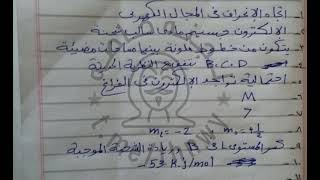 اتجاه الانحراف فى المجال الكهربى
الالكترون جسيم مادى سالب الشحنة
يتكون من خطوط ملونة بينها مساحات مضيئة
B.C.D
احتمالية تواجد الالكترون فى الفراغ
M
7
٨- mℓ = -2 , ms = +½
٩- المستوى B وزيادة الشحنة الموجبة
١٠- -53 KJ/mol